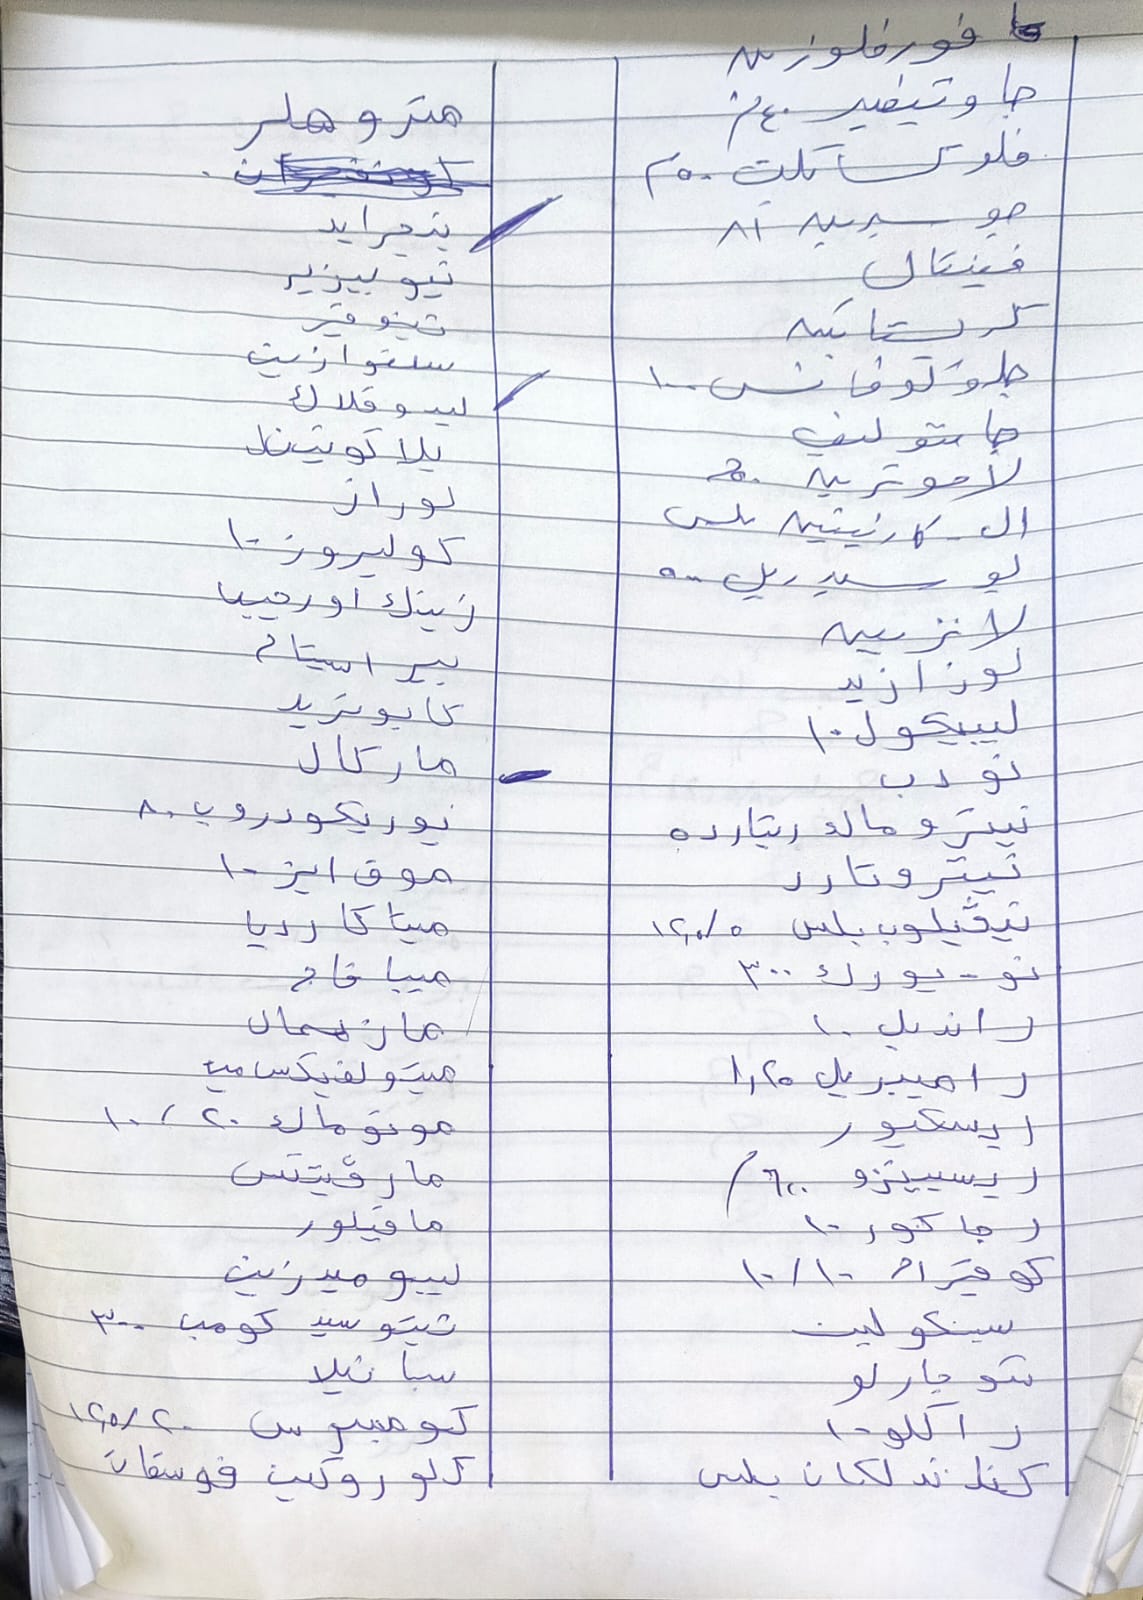 فورفلوزين
جاوتيفير ٤٠٠م
فلوكساكلت ٢٥٠
جوسبرين ٨١
فينتال
كرستاتين
جلوكوفانس ١٠٠٠
جاستوليف
لاجوترين
ال-كارنيتين بلس
لوسيدريل ٥٠٠
لانزيين
لوزازيد
ليبيكول ١٠
نودب
نيتروماك ريتارد ٥
نيتروتارد
نيڤيلوب بلس ١٢,٥/٥
نو-يورك ٣٠٠
رانديل ١٠
راميبريل ١,٢٥
ايسكيور
ريسبيتزو ٦٠٠م
رجاكور ١٠
كوفترام ١٠/١٠
سينكولين
نتوجارلو
راكلو ١٠
كنلاندلكان بلس
هتروهلر
بنجرايد
نيوبيزير
تينوفتر
سلفوازيت
ليبوفلاك
بلاكونيتل
لوراز
كوليروز ١٠
زينك اورجيبا
بيراسيتام
كابوتريد
ماركال
نيوريكودروب ٨٠
موف ايز ١٠
ميتاكارديا
ميبافاج
مازيمال
ميتولفيكسامين
مونوماك ٢٠ / ١٠
مارڤيتس
مافيلور
ليبوميدزيت
تيتوسيد كومب ٣٠٠
سبانيلا
كومبيوس ١٢,٥/٢٠
كلوروكين فوسفات